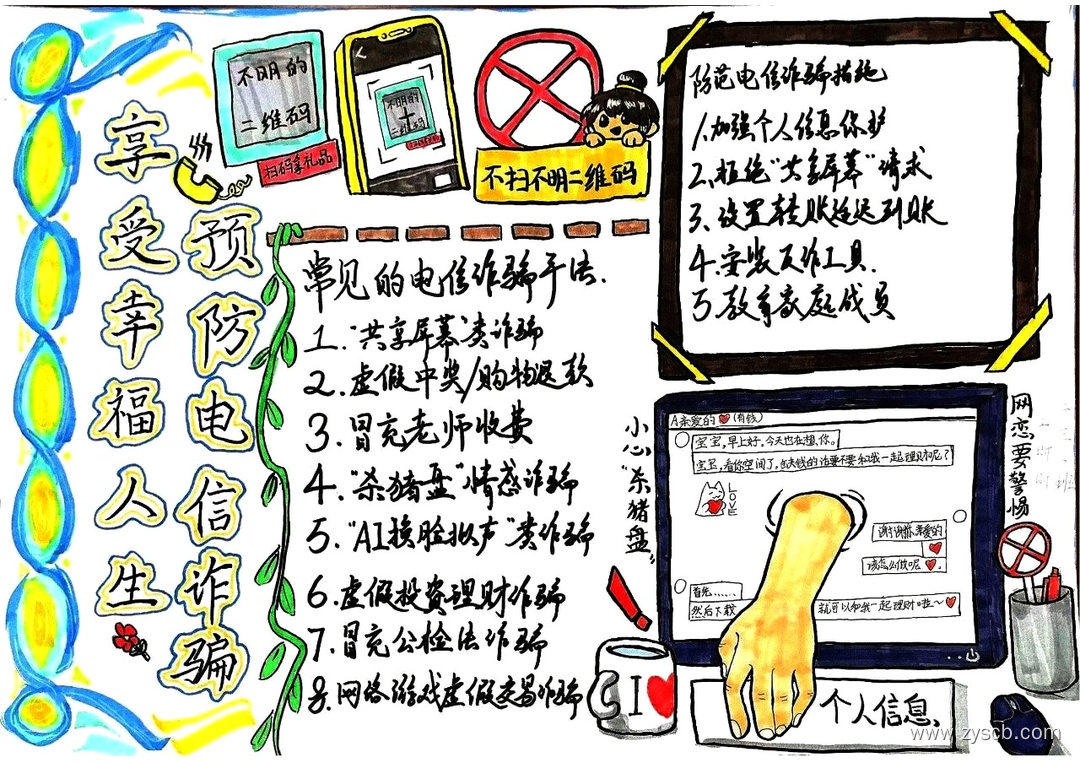 预防电信诈骗
享受幸福人生
不明的
二维码
扫码拿礼品
不明的
二维码
不扫不明二维码
常见的电信诈骗手法.
1.“共享屏幕”类诈骗
2.虚假中奖/购物退款
3.冒充老师收费
4.“杀猪盘”情感诈骗
5.“AI换脸拟声”类诈骗
6.虚假投资理财诈骗
7.冒充公检法诈骗
8.网络游戏虚假交易诈骗
防范电信诈骗措施
1.加强个人信息保护
2.拒绝“共享屏幕”请求
3.设置转账延迟到账
4.安装反诈工具.
5.教育家庭成员
小心“杀猪盘”
网恋要警惕
A亲爱的(有钱)
宝宝,早上好,今天也在想你。
宝宝,看你空间了,缺钱的话要不要和我一起理财呢?
LOVE
谢谢你亲爱的
该怎么做呢
首先......
然后下载
就可以和我一起理财啦~
个人信息、
I
www.zyscb.com